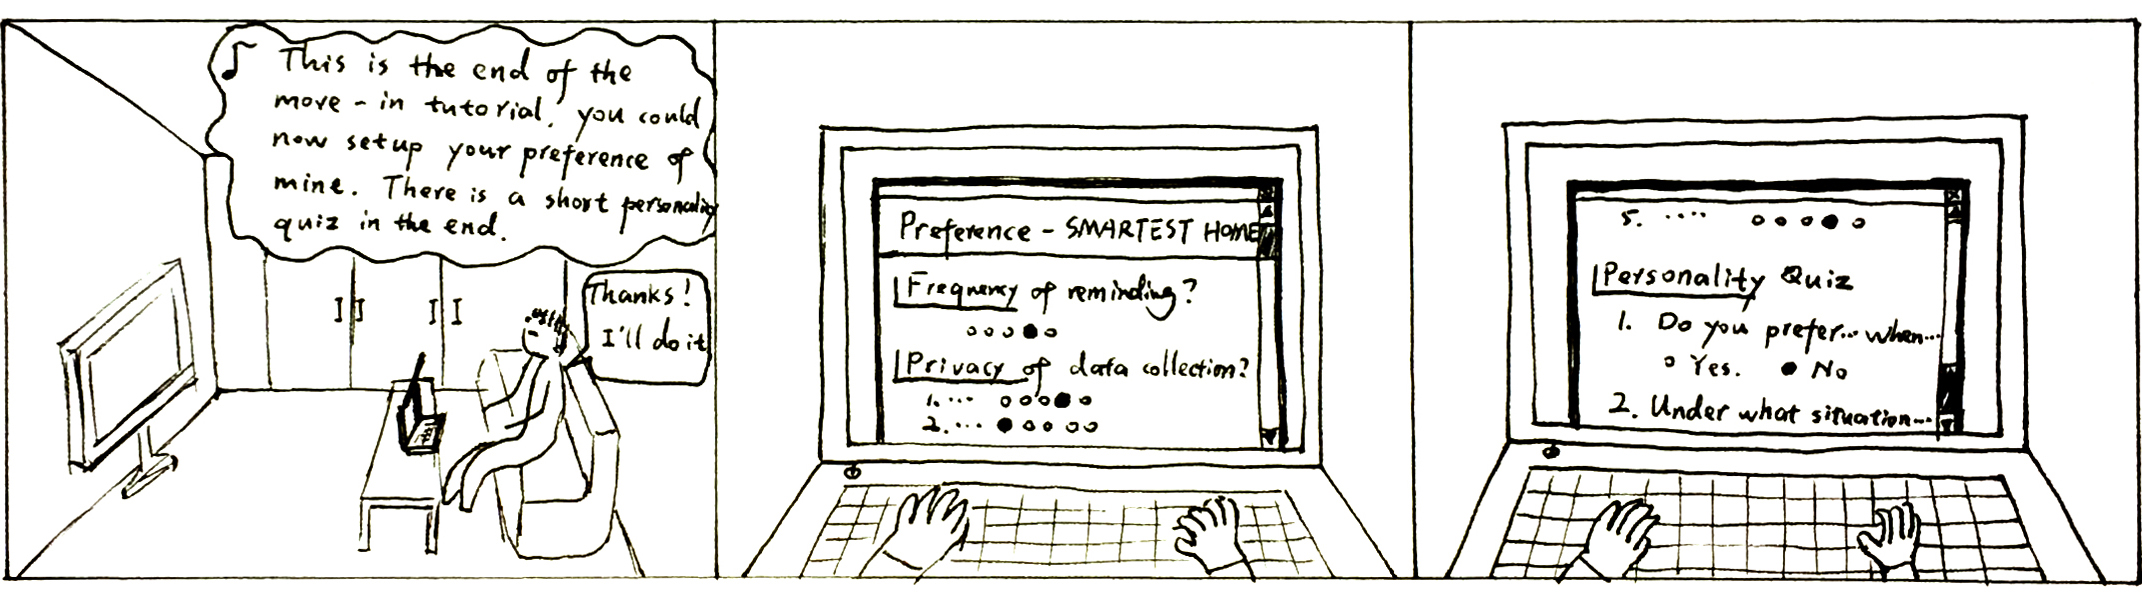 This is the end of the
move-in tutorial, you could
now setup your preference of
mine. There is a short personality
quiz in the end.
Thanks!
I'll do it
Preference - SMARTEST HOME
Frequency of reminding?
Privacy of data collection?
1. ...
2. ...
5. ....
Personality Quiz
1. Do you prefer... when...
Yes. No
2. Under what situation...